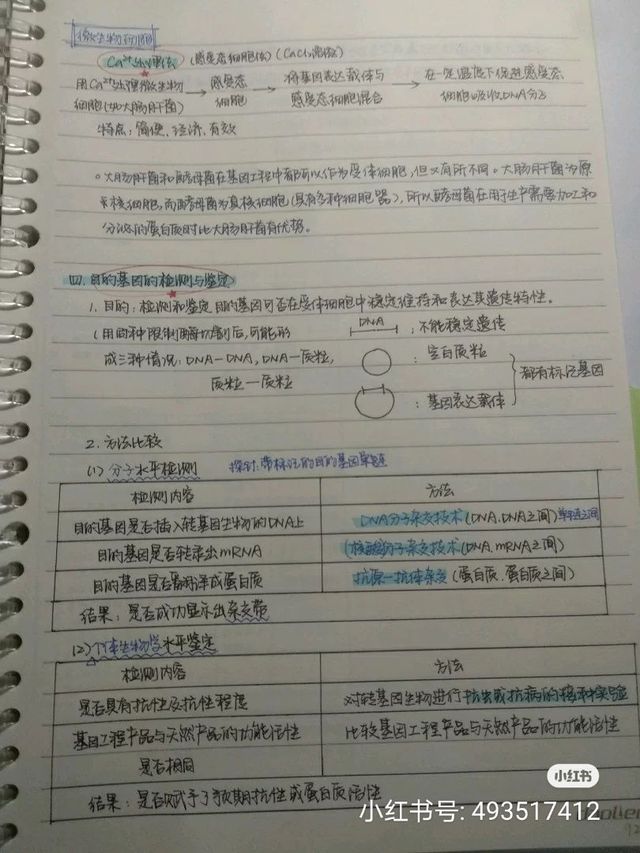 微生物细胞
Ca²⁺处理法 (感受态细胞法) (CaCl₂溶液)
用Ca²⁺处理微生物细胞(如大肠杆菌) → 感受态细胞 → 将基因表达载体与感受态细胞混合 → 在一定温度下促进感受态细胞吸收DNA分子
特点：简便、经济、有效
。大肠杆菌和酵母菌在基因工程中都可以作为受体细胞，但又有所不同。大肠杆菌为原
核细胞，而酵母菌为真核细胞(具有多种细胞器)，所以酵母菌在用于生产需要加工和
分泌的蛋白质时比大肠杆菌有优势。
四. 目的基因的检测与鉴定
1. 目的：检测和鉴定目的基因可否在受体细胞中稳定维持和表达其遗传特性。
(用同种限制酶切割后，可能形
成三种情况：DNA-DNA，DNA-质粒，
质粒-质粒
DNA：不能稳定遗传
：空白质粒
：基因表达载体
都有标记基因
2. 方法比较
(1) 分子水平检测 探针：带标记的目的基因单链
检测内容 方法
目的基因是否插入转基因生物的DNA上 DNA分子杂交技术(DNA、DNA之间) 单链之间
目的基因是否转录出mRNA (核酸)分子杂交技术(DNA、mRNA之间)
目的基因是否翻译成蛋白质 抗原-抗体杂交 (蛋白质、蛋白质之间)
结果：是否成功显示出杂交带
(2) 个体生物学水平鉴定
检测内容 方法
是否具有抗性及抗性程度 对转基因生物进行抗虫或抗病的接种实验
基因工程产品与天然产品的功能活性 比较基因工程产品与天然产品的功能活性
是否相同
结果：是否赋予了预期抗性或蛋白质活性
小红书
小红书号: 493517412